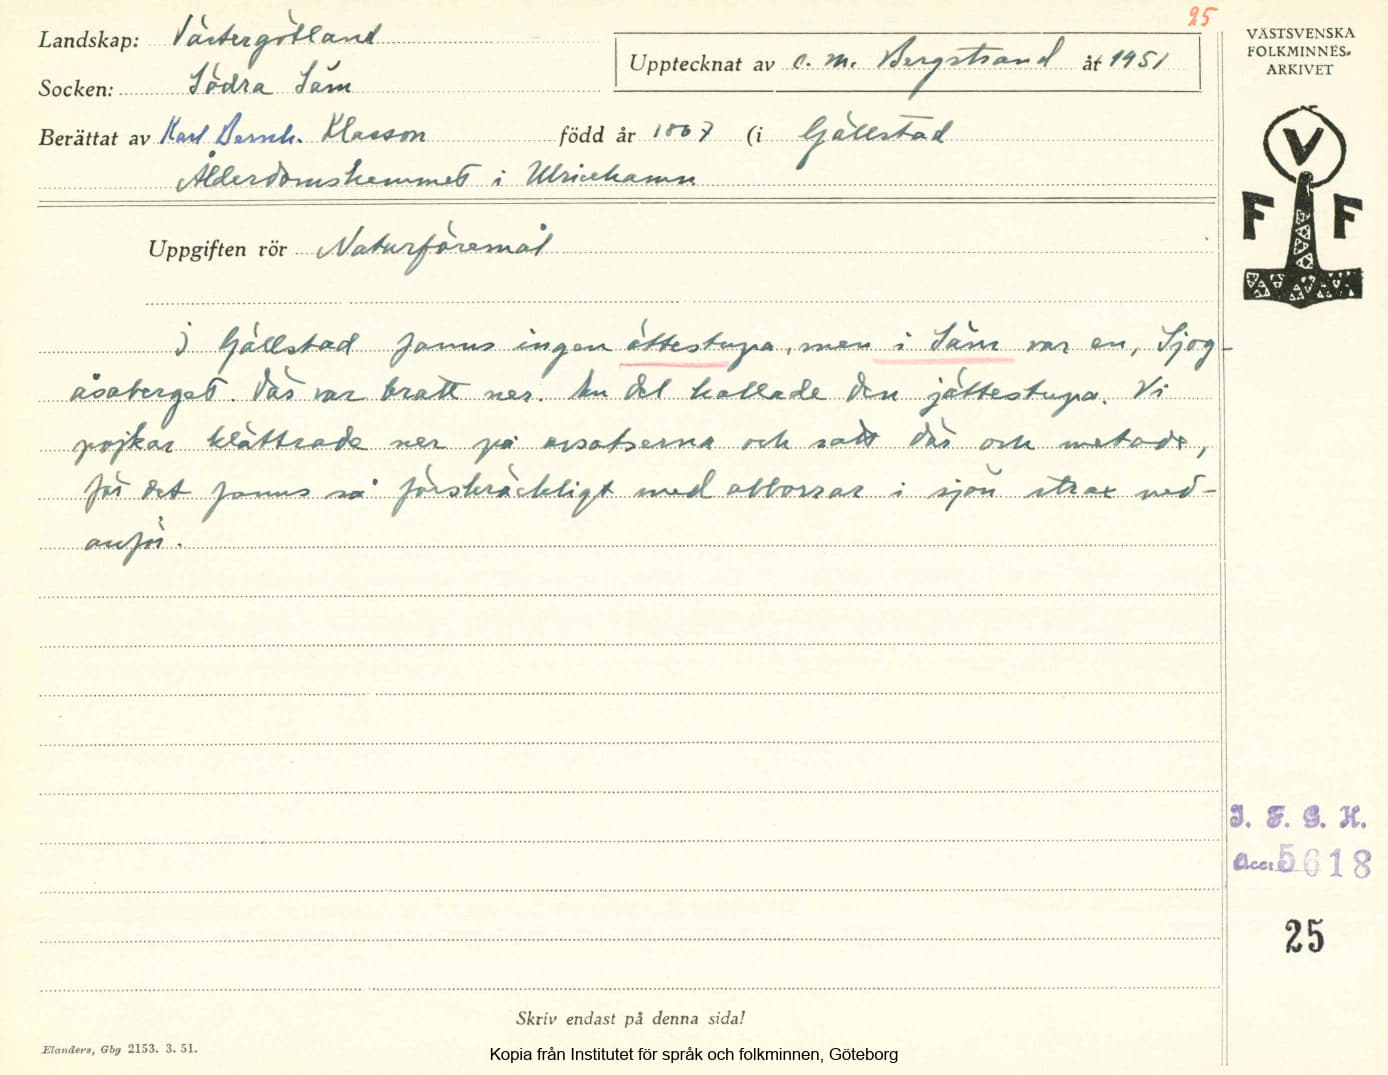 25
Landskap: Västergötland
Upptecknat av C. M. Bergstrand år 1951
Socken: Södra Säm
Berättat av Karl Bernh. Klasson född år 1867 (i Gällstad
Ålderdomshemmet i Ulricehamn
Uppgiften rör Naturföremål
I Gällstad fanns ingen ättestupa, men i Säm var en, Sjog-
åsaberget. Där var brant ner. En del kallade den jättestupa. Vi
pojkar klättrade ner på avsatserna och satt där och metade,
för det fanns så förskräckligt med abborrar i sjön strax ned-
anför.
Skriv endast på denna sida!
Elanders, Gbg 2153. 3. 51.
Kopia från Institutet för språk och folkminnen, Göteborg
VÄSTSVENSKA
FOLKMINNES-
ARKIVET
V
F F
I. F. G. H.
Acc. 5618
25